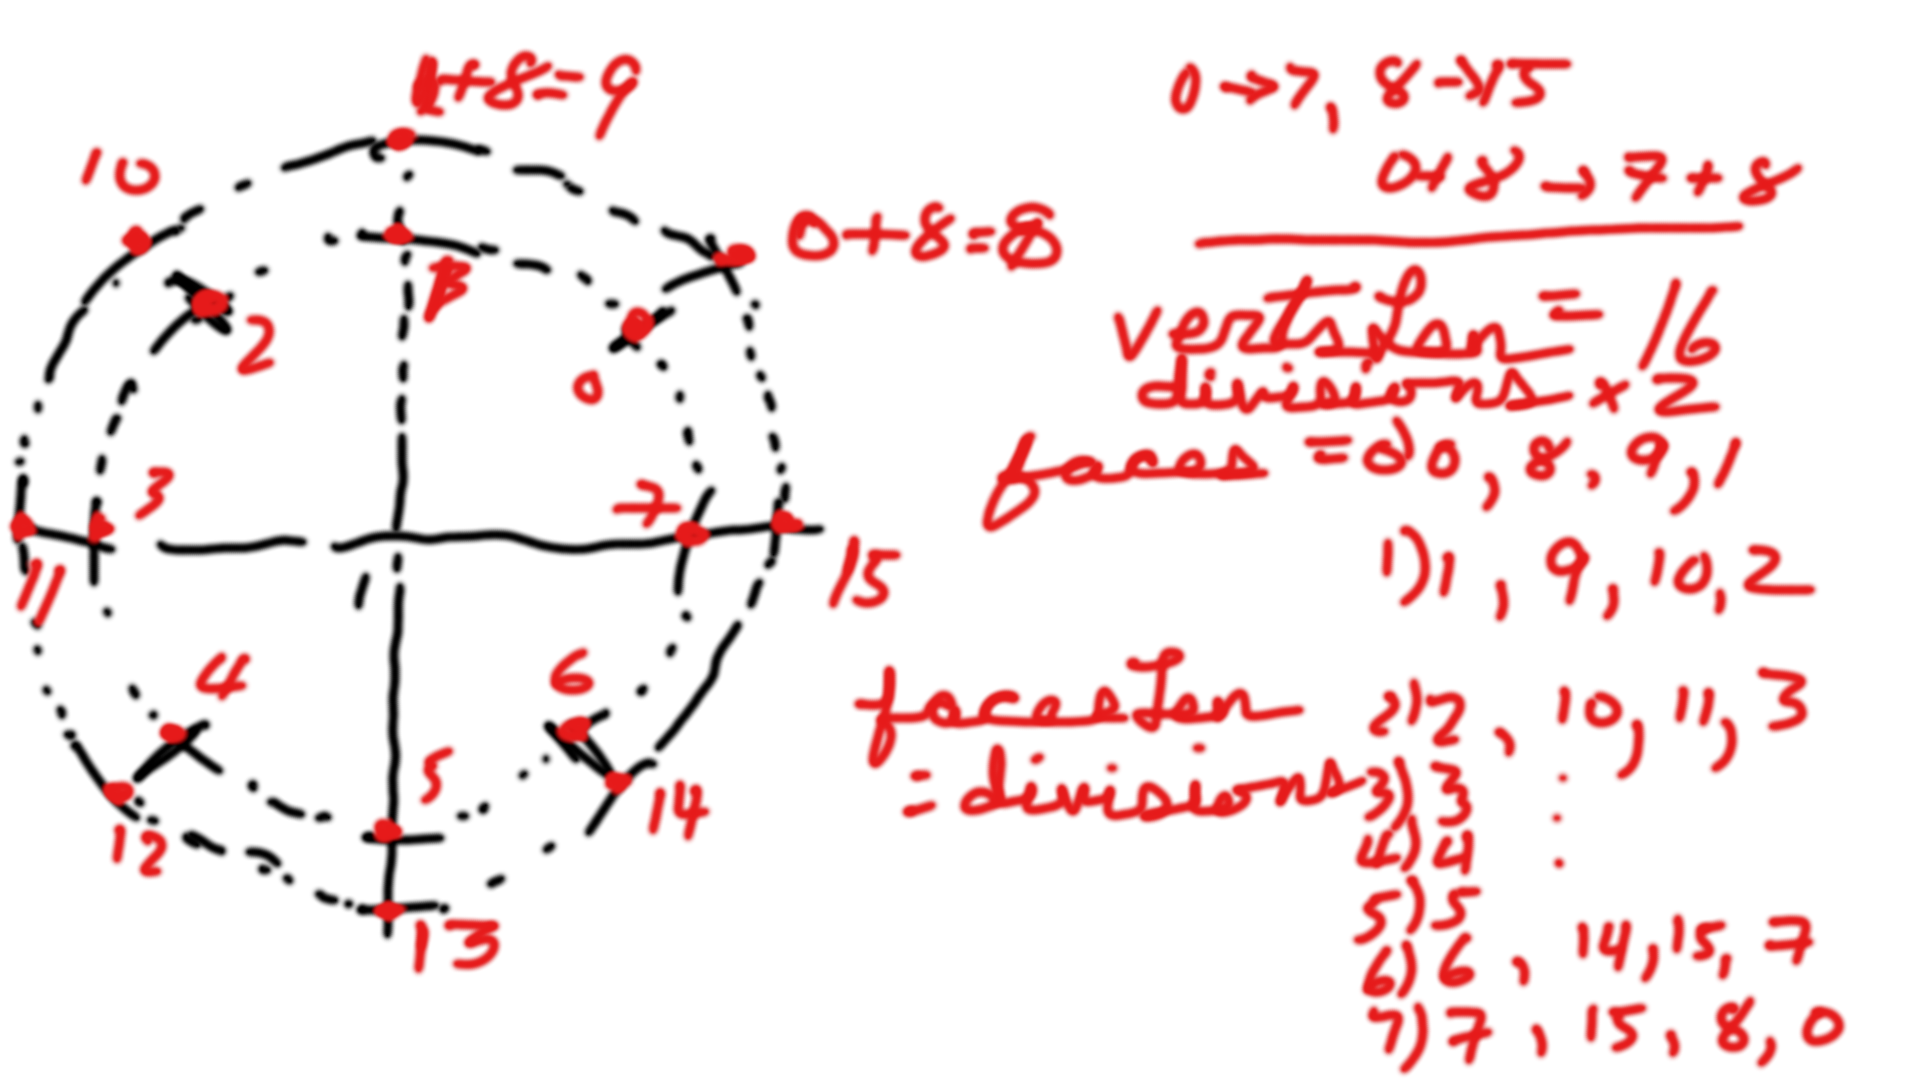 1+8=9
10
0+8=8
1
2
0
3
7
11
15
4
6
5
12
14
13
0→7, 8→15
0+8→7+8
vertsLen = 16
divisions x2
faces = 0) 0, 8, 9, 1
1) 1, 9, 10, 2
facesLen
= divisions
2) 2, 10, 11, 3
3) 3 .
4) 4 .
5) 5
6) 6, 14, 15, 7
7) 7, 15, 8, 0